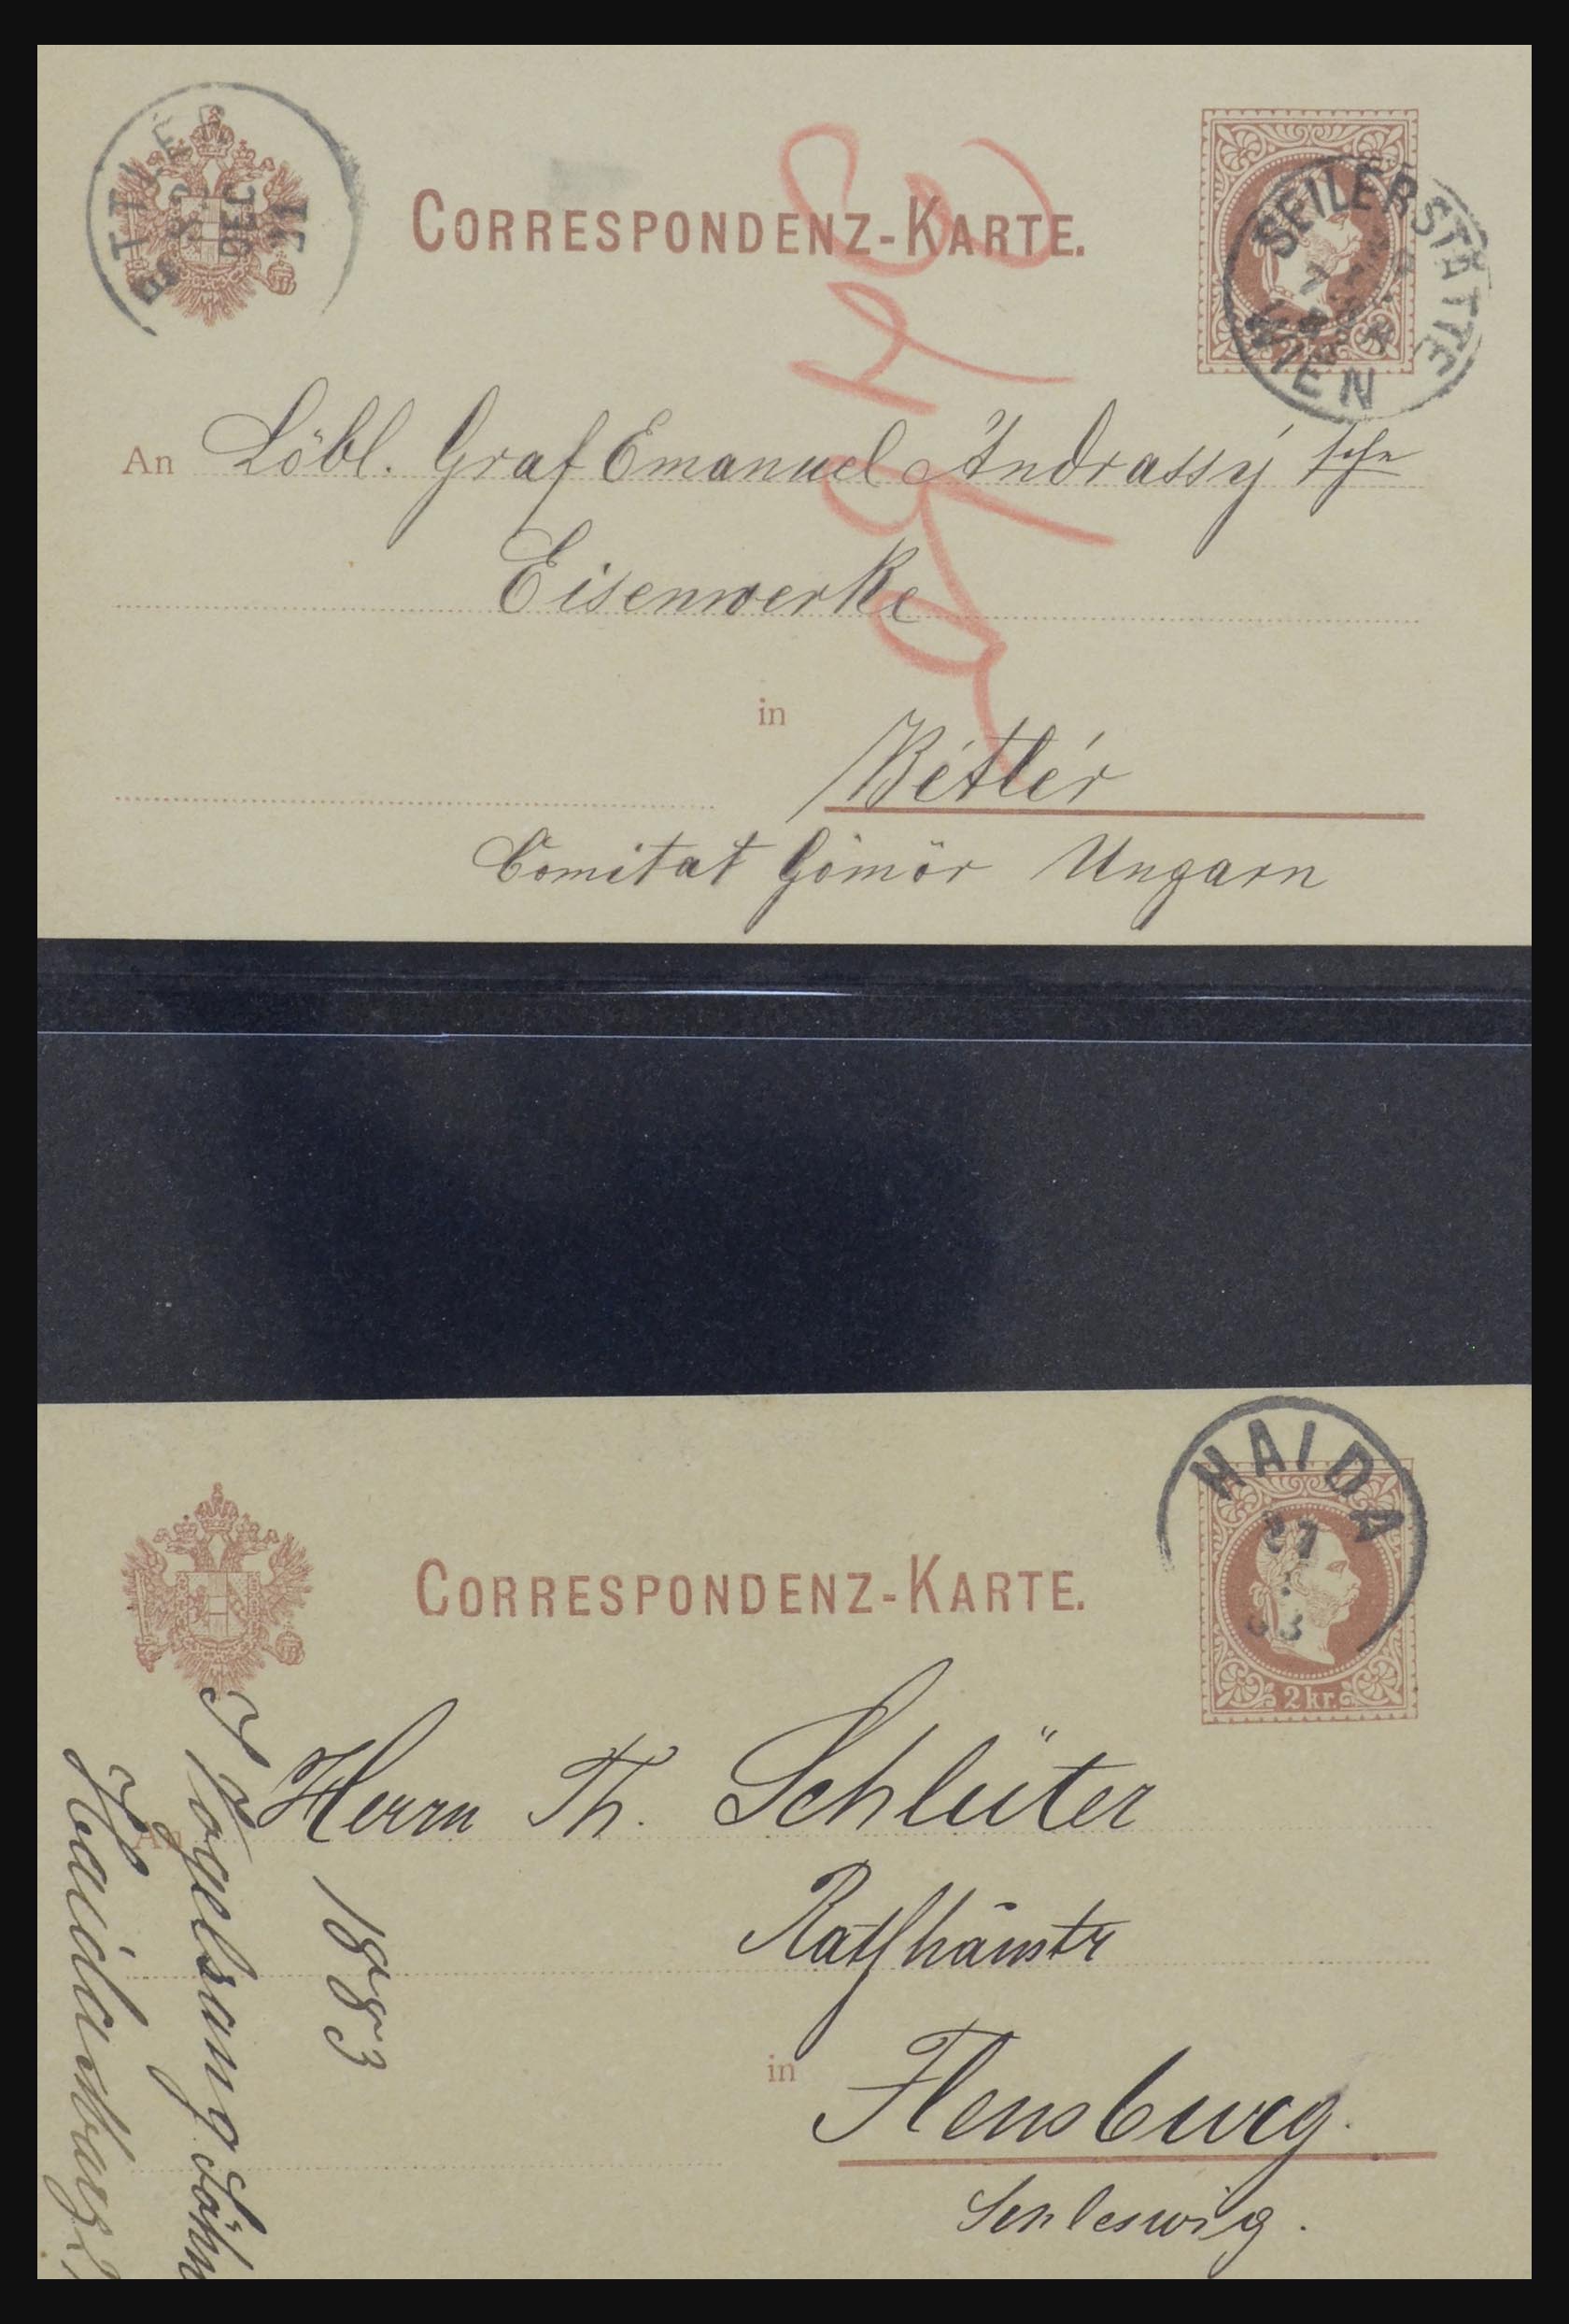 BETLÉR
DEC
CORRESPONDENZ-KARTE.
SEILERSTÄTTE
WIEN
An Löbl. Graf Emanuel Andrassy
Eisenwerke
in Bétlér
Comitat Gömör Ungarn
CORRESPONDENZ-KARTE.
HAIDA
27
83
2 kr.
Herrn Th. Schlüter
Rathhausstr
in Flensburg.
Schleswig.
1883
Vogelsang Söhn